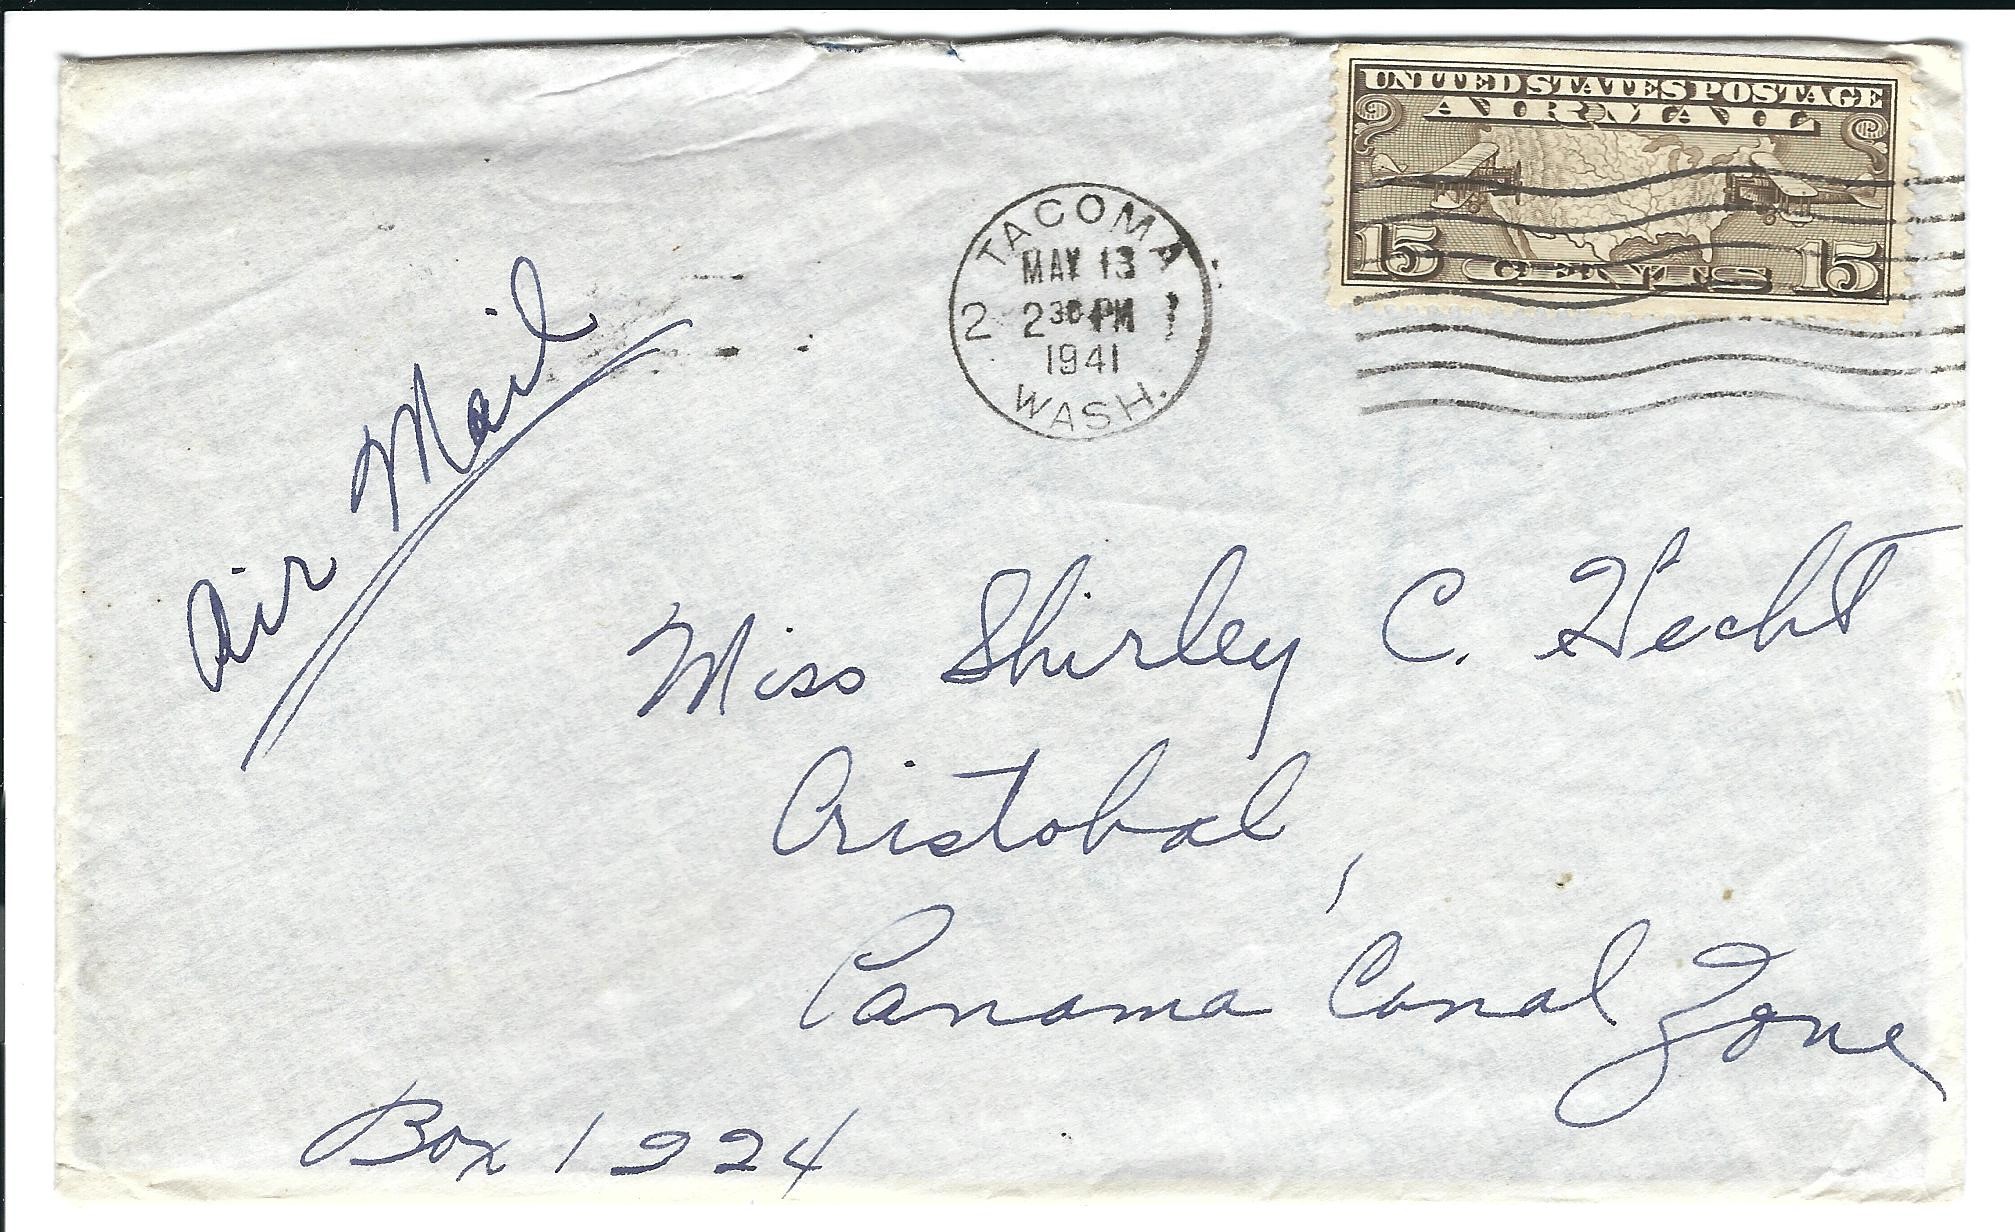 UNITED STATES POSTAGE
AIR MAIL
15 CENTS 15
TACOMA
MAY 13
2 2 30 PM
1941
WASH.
Air Mail
Miss Shirley C. Hecht
Cristobal,
Panama Canal Zone
Box 1224